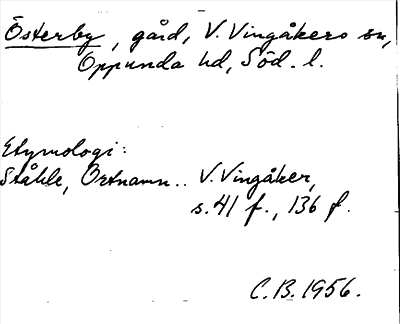 Österby, gård, V. Vingåkers sn,
Oppunda hd, Söd. l.
Etymologi:
Ståhle, Ortnamn.. V. Vingåker,
s. 41 f., 136 f.
C.B. 1956.